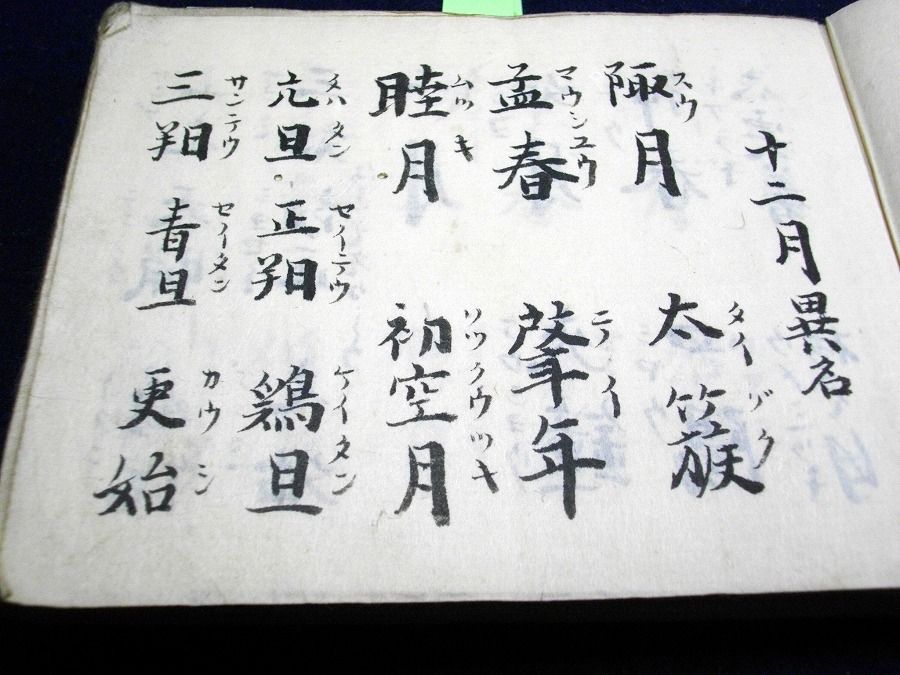 十二月異名
スウ タイゾク
陬月 太簇
マウシユウ
孟春 肇年
ムツキ ソツクウツキ
睦月 初空月
タン セイテウ ケイタン
元旦 正朝 鶏旦
サンテウ セイタン カウシ
三朝 青旦 更始